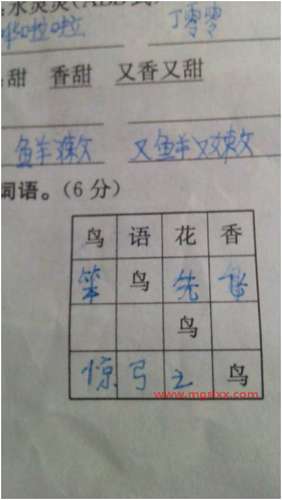 水灵灵(ABB式)
哗啦啦 丁零零
甜 香甜 又香又甜
鲜嫩 又鲜又嫩
词语。(6分)
鸟 语 花 香
笨 鸟 先 飞
鸟
惊 弓 之 鸟
www.mgaxx.com